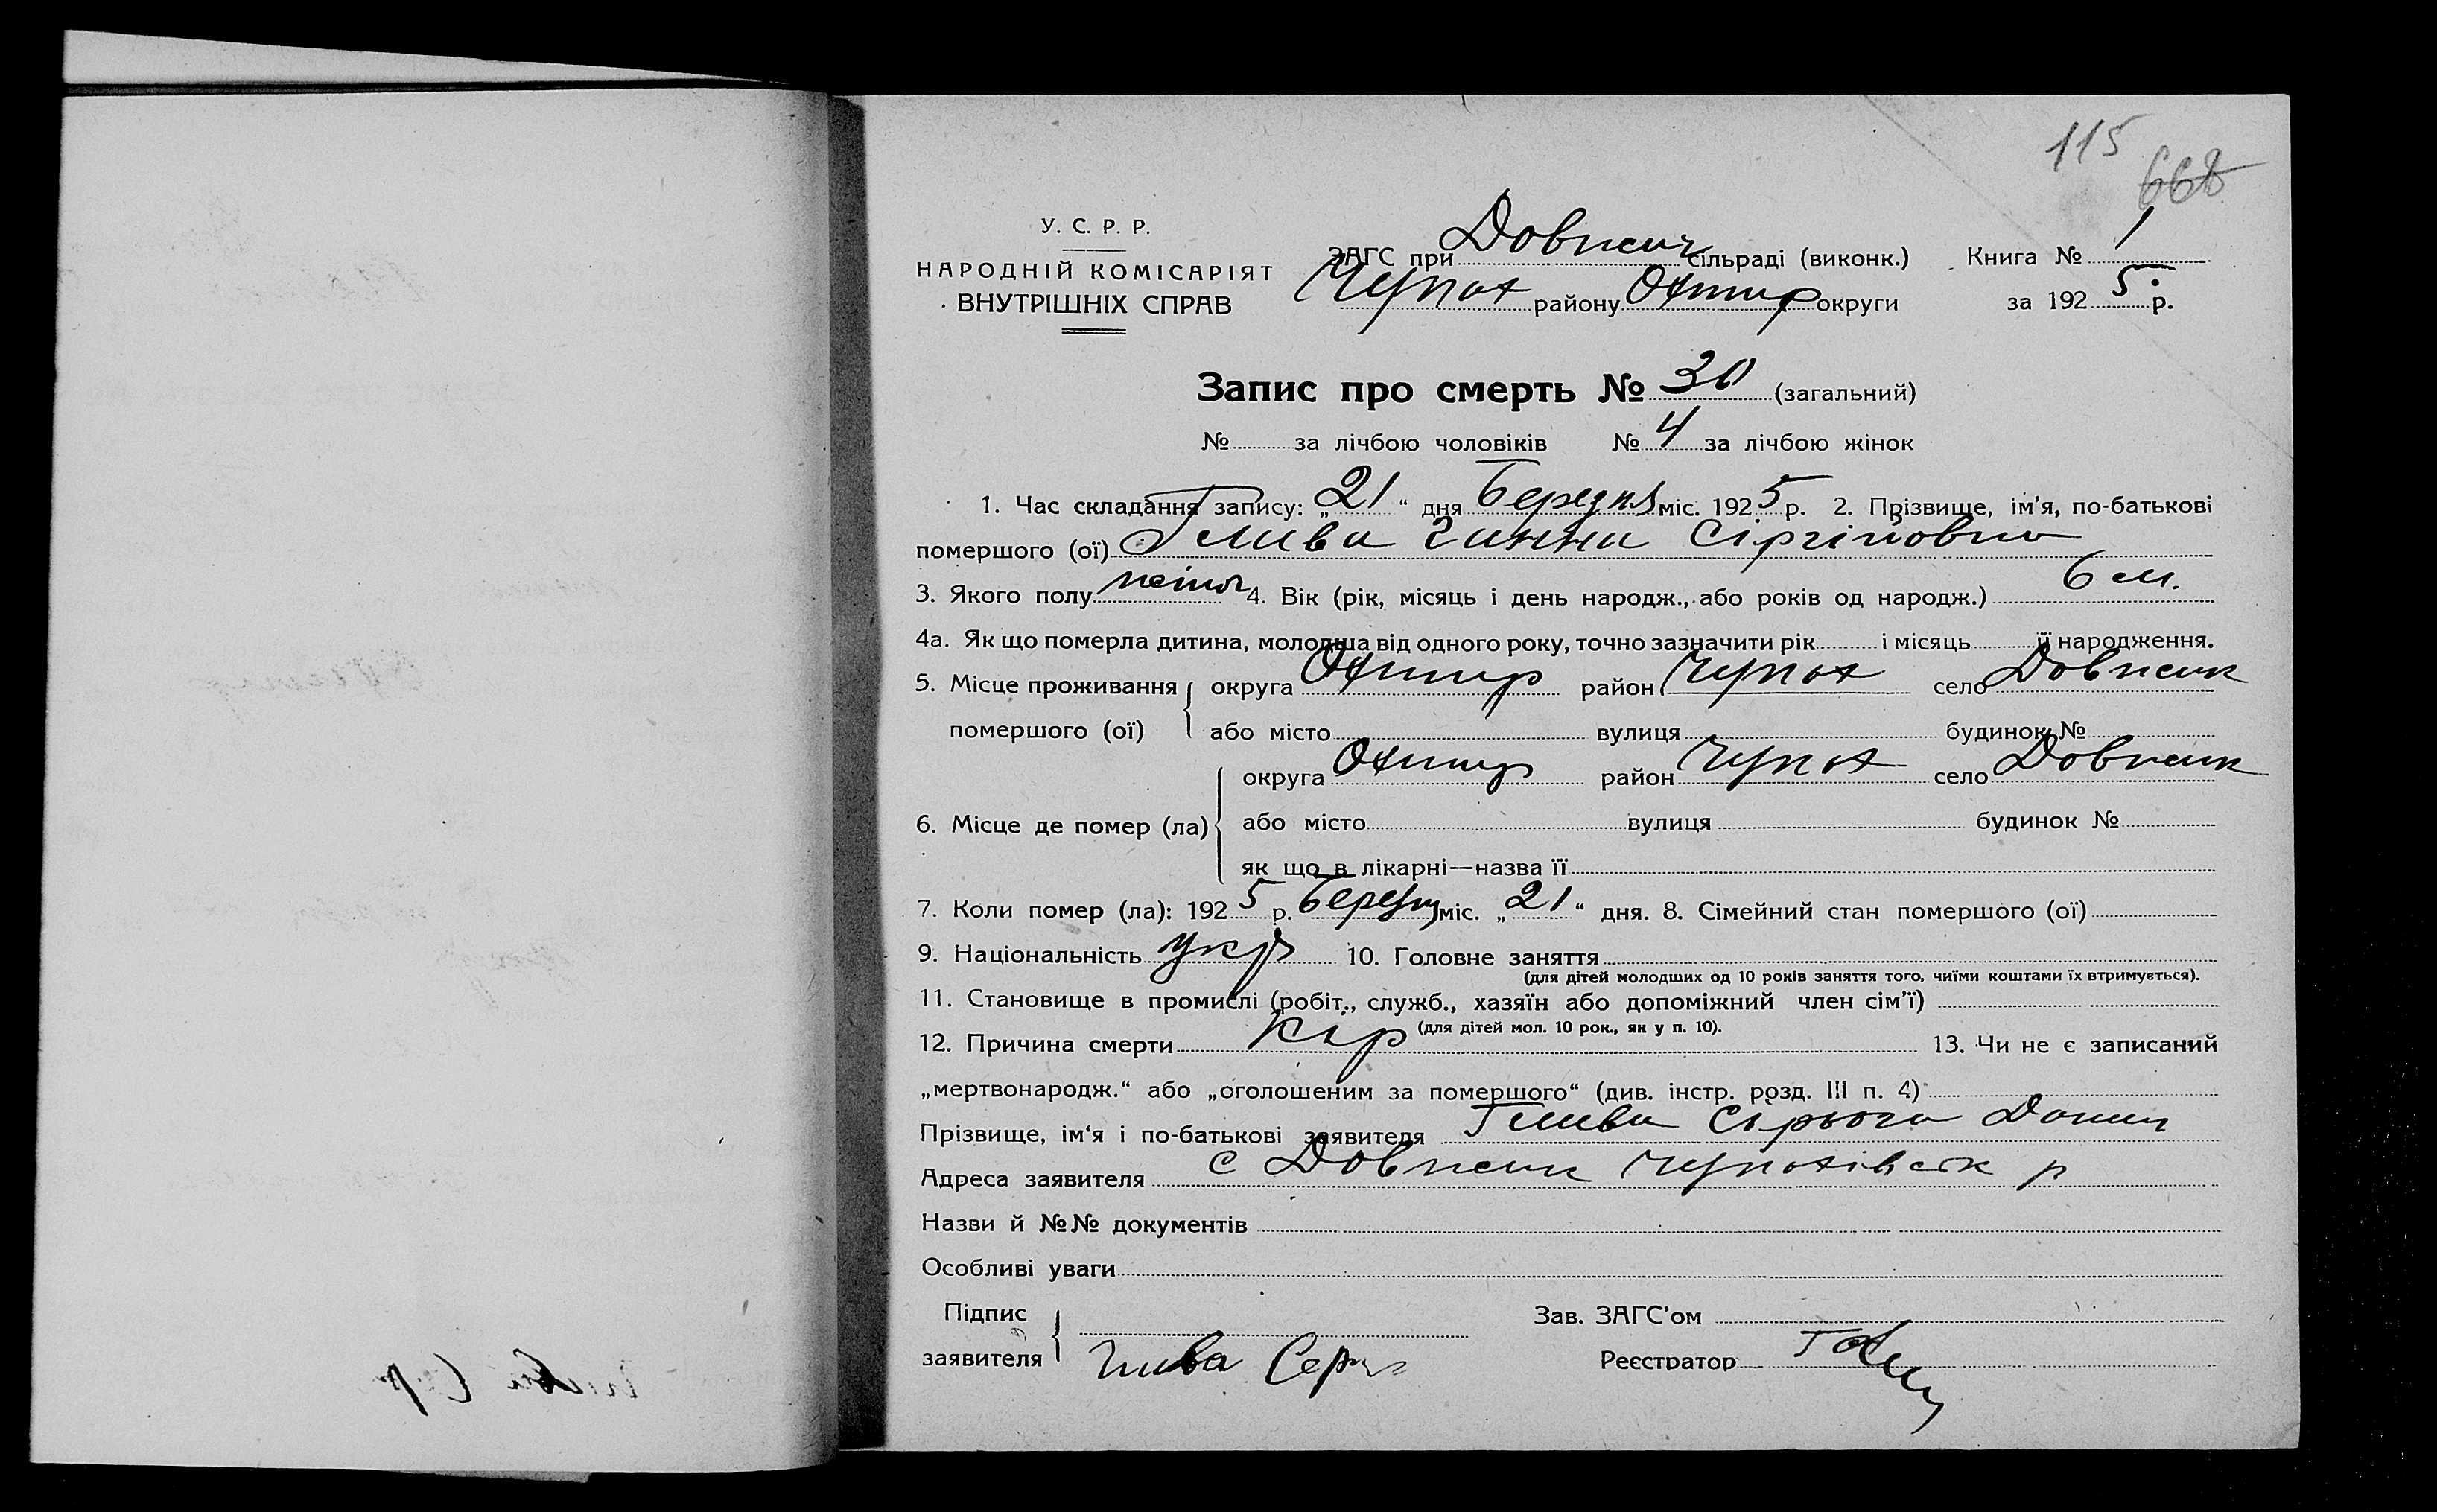 115
668
У. С. Р. Р.
НАРОДНІЙ КОМІСАРІЯТ
ВНУТРІШНІХ СПРАВ
ЗАГС при Довжич сільраді (виконк.) Книга № 1
Чупах району Охтир округи за 1925 р.
Запис про смерть № 30 (загальний)
№ за лічбою чоловіків № 4 за лічбою жінок
1. Час складання запису: „21“ дня Березня міс. 1925 р. 2. Прізвище, ім'я, по-батькові
помершого (ої) Глива Ганна Сіргійовна
3. Якого полу жіноч 4. Вік (рік, місяць і день народж., або років од народж.) 6 м.
4а. Як що померла дитина, молодша від одного року, точно зазначити рік і місяць її народження.
5. Місце проживання округа Охтир район Чупах село Довжик
помершого (ої) або місто вулиця будинок №
округа Охтир район Чупах село Довжик
6. Місце де помер (ла) або місто вулиця будинок №
як що в лікарні—назва її
7. Коли помер (ла): 1925 р. Березня міс. „21“ дня. 8. Сімейний стан помершого (ої)
9. Національність укр 10. Головне заняття
(для дітей молодших од 10 років заняття того, чиїми коштами їх втримується).
11. Становище в промислі (робіт., служб., хазяїн або допоміжний член сім'ї)
(для дітей мол. 10 рок., як у п. 10).
12. Причина смерти Кір 13. Чи не є записаний
„мертвонародж.“ або „оголошеним за помершого“ (див. інстр. розд. III п. 4)
Прізвище, ім'я і по-батькові заявителя Глива Сірьога Данил
Адреса заявителя с Довжик Чупахівськ р
Назви й №№ документів
Особливі уваги
Підпис
заявителя Глива Серг
Зав. ЗАГС'ом
Реєстратор